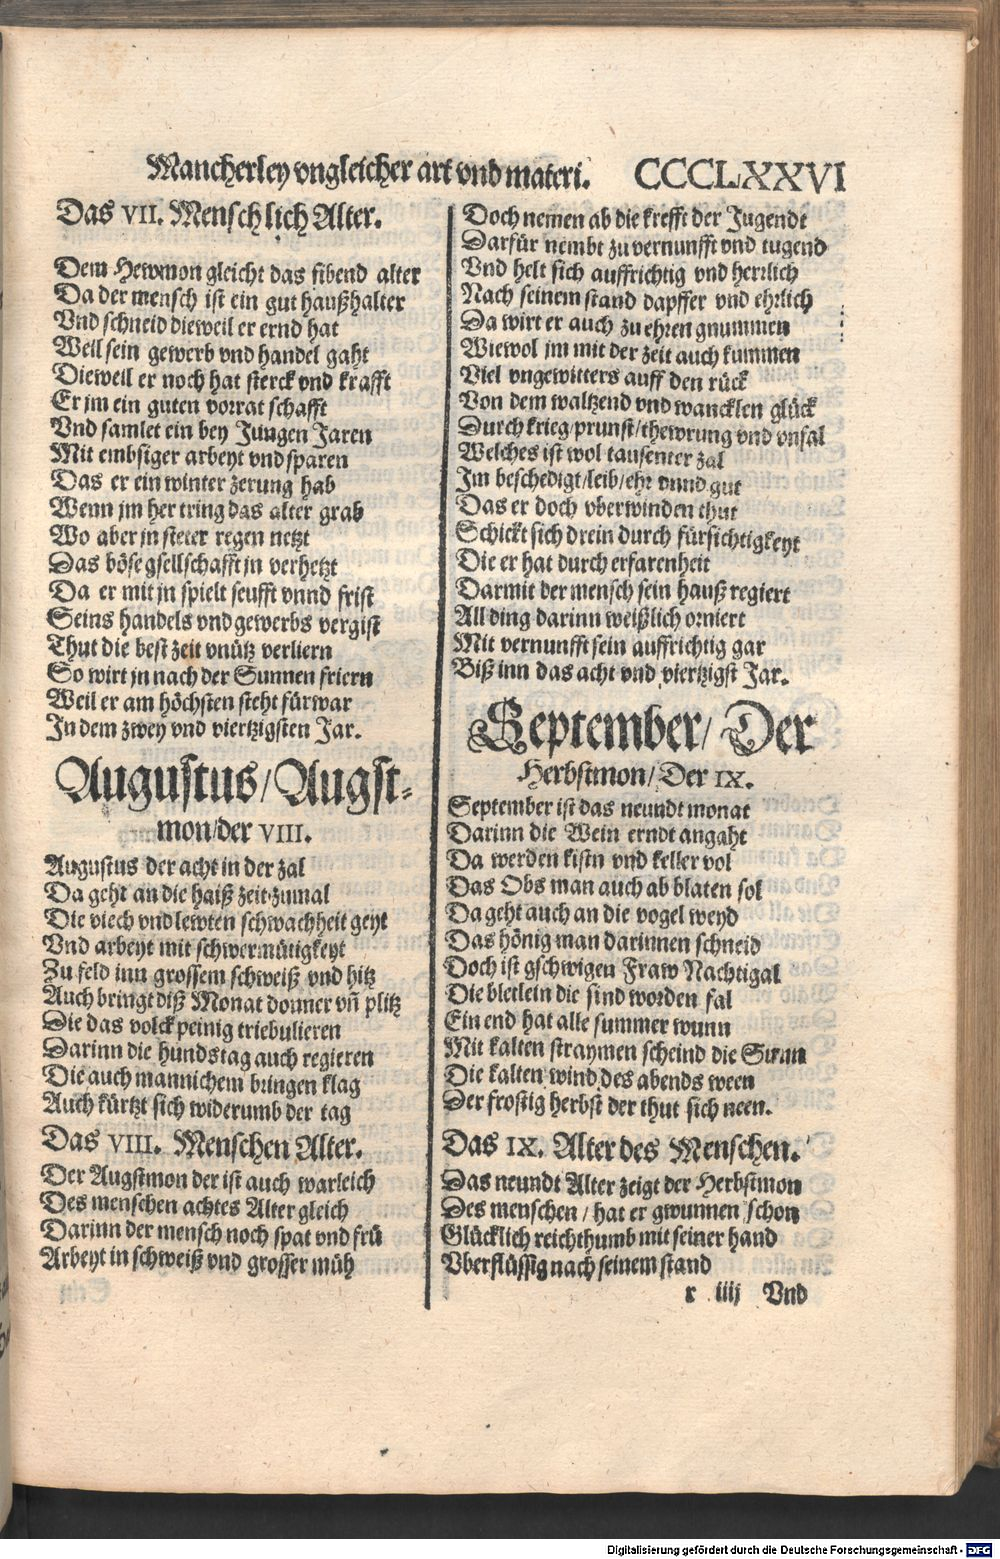 Mancherley vngleicher art vnd materi. CCCCLXXVI
Das VII. Menschlich Alter.
Dem Hewmon gleicht das sibend alter
Da der mensch ist ein gut haußhalter
Vnd schneid dieweil er ernd hat
Weil sein gewerb vnd handel gaht
Dieweil er noch hat sterck vnd krafft
Er jm ein guten vorrat schafft
Vnd samlet ein bey Jungen Jaren
Mit embsiger arbeyt vnd sparen
Das er ein winter zerung hab
Wenn jm her tring das alter grab
Wo aber jn steter regen netzt
Das böse gsellschafft jn verhetzt
Da er mit jn spielt seufft vnnd frist
Seins handels vnd gewerbs vergist
Thut die best zeit vnütz verliern
So wirt jn nach der Sunnen friern
Weil er am höchsten steht fürwar
In dem zwey vnd viertzigsten Jar.
Augustus/Augst-
mon/der VIII.
Augustus der acht in der zal
Da geht an die haiß zeit zumal
Die viech vnd lewten schwachheit geyt
Vnd arbeyt mit schwermütigkeyt
Zu feld inn grossem schweiß vnd hitz
Auch bringt diß Monat donner vñ plitz
Die das volck peinig triebulieren
Darinn die hundstag auch regieren
Die auch mannichem bringen klag
Auch kürtzt sich widerumb der tag
Das VIII. Menschen Alter.
Der Augstmon der ist auch warleich
Des menschen achtes Alter gleich
Darinn der mensch noch spat vnd frü
Arbeyt in schweiß vnd grosser müh
Doch nemen ab die krefft der Jugendt
Darfür nembt zu vernunfft vnd tugend
Vnd helt sich auffrichtig vnd herrlich
Nach seinem stand dapffer vnd ehrlich
Da wirt er auch zu ehren gnummen
Wiewol jm mit der zeit auch kummen
Viel vngewitters auff den rück
Von dem waltzend vnd wancklen glück
Durch krieg/prunst/thewrung vnd vnfal
Welches ist wol tausenter zal
Im beschedigt/leib/ehr vnnd gut
Das er doch vberwinden thut
Schickt sich drein durch fürsichtigkeyt
Die er hat durch erfarenheit
Darmit der mensch sein hauß regiert
All ding darinn weißlich orniert
Mit vernunfft sein auffrichtig gar
Biß inn das acht vnd viertzigst Jar.
September/Der
Herbstmon/Der IX.
September ist das neundt monat
Darinn die Wein erndt angaht
Da werden kistn vnd keller vol
Das Obs man auch ab blaten sol
Da geht auch an die vogel weyd
Das hönig man darinnen schneid
Doch ist gschwigen Fraw Nachtigal
Die bletlein die sind worden fal
Ein end hat alle summer wunn
Mit kalten straymen scheind die Sunn
Die kalten wind des abends ween
Der frostig herbst der thut sich neen.
Das IX. Alter des Menschen.
Das neundt Alter zeigt der Herbstmon
Des menschen/hat er gwunnen schon
Glücklich reichthumb mit seiner hand
Vberflüssig nach seinem stand
r iiij Vnd
Digitalisierung gefördert durch die Deutsche Forschungsgemeinschaft - DFG